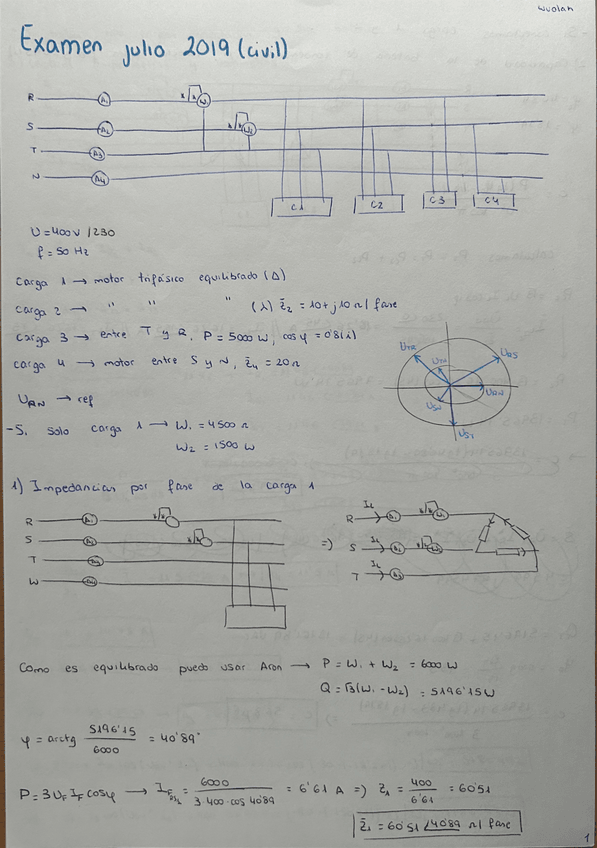 wuolah
Examen julio 2019 (civil)
R A1 W1
S A2 W2
T A3
N A4
C1 C2 C3 C4
U=400V /230
f=50 Hz
Carga 1 → motor trifásico equilibrado (Δ)
Carga 2 → " " " (λ) Z̄2 = 10+j10 Ω/fase
Carga 3 → entre T y R, P = 5000 W, cos φ = 0'8(i)
Carga 4 → motor entre S y N, Z̄4 = 20Ω
URN → ref
UTR URS
UTN URN
USN
UST
-Si solo carga 1 → W1 = 4500 Ω
W2 = 1500 W
1) Impedancias por fase de la carga 1
R A1
S A2
T A3
W A4
=)
R IL A1 W1
S IL A2 W2
T IL A3
Como es equilibrado puedo usar Aron → P = W1 + W2 = 6000 W
Q = √3(W1 - W2) = 5196'15 W
φ = arctg 5196'15/6000 = 40'89°
P = 3 UF IF cosφ → IF = 6000/3·400·cos 40'89 = 6'61 A =) Z1 = 400/6'61 = 60'51
Z̄1 = 60'51 ∠40'89 Ω/fase
1